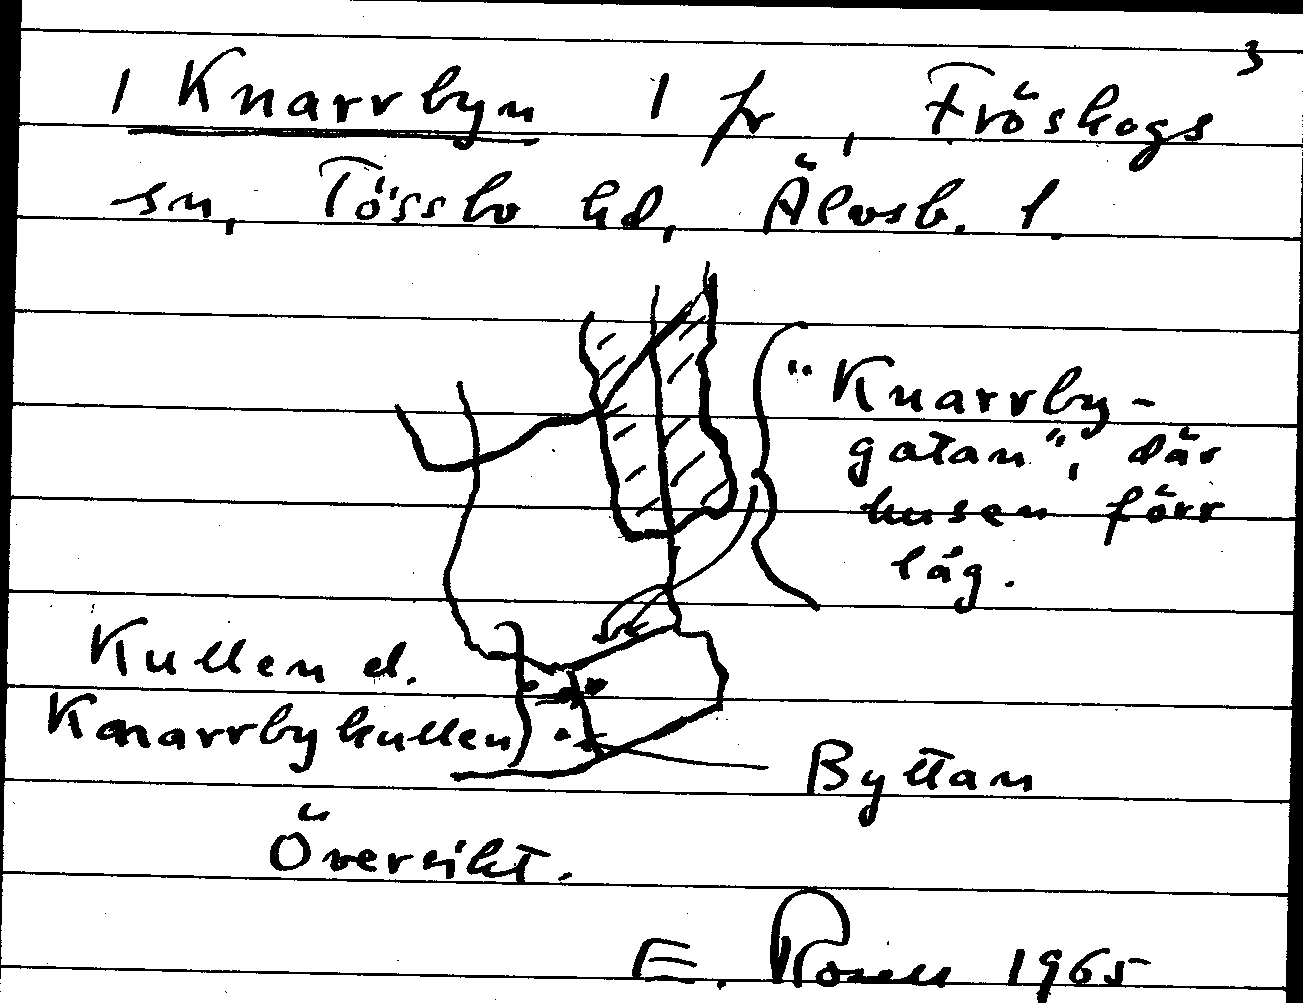 3
1 Knarrbyn 1 fr, Fröskogs
sn, Tössbo hd, Älvsb. l.
"Knarrby-
gatan", där
husen förr
låg.
Kullen el.
Knarrbykullen
Byttan
Översikt.
E. Rosell 1965